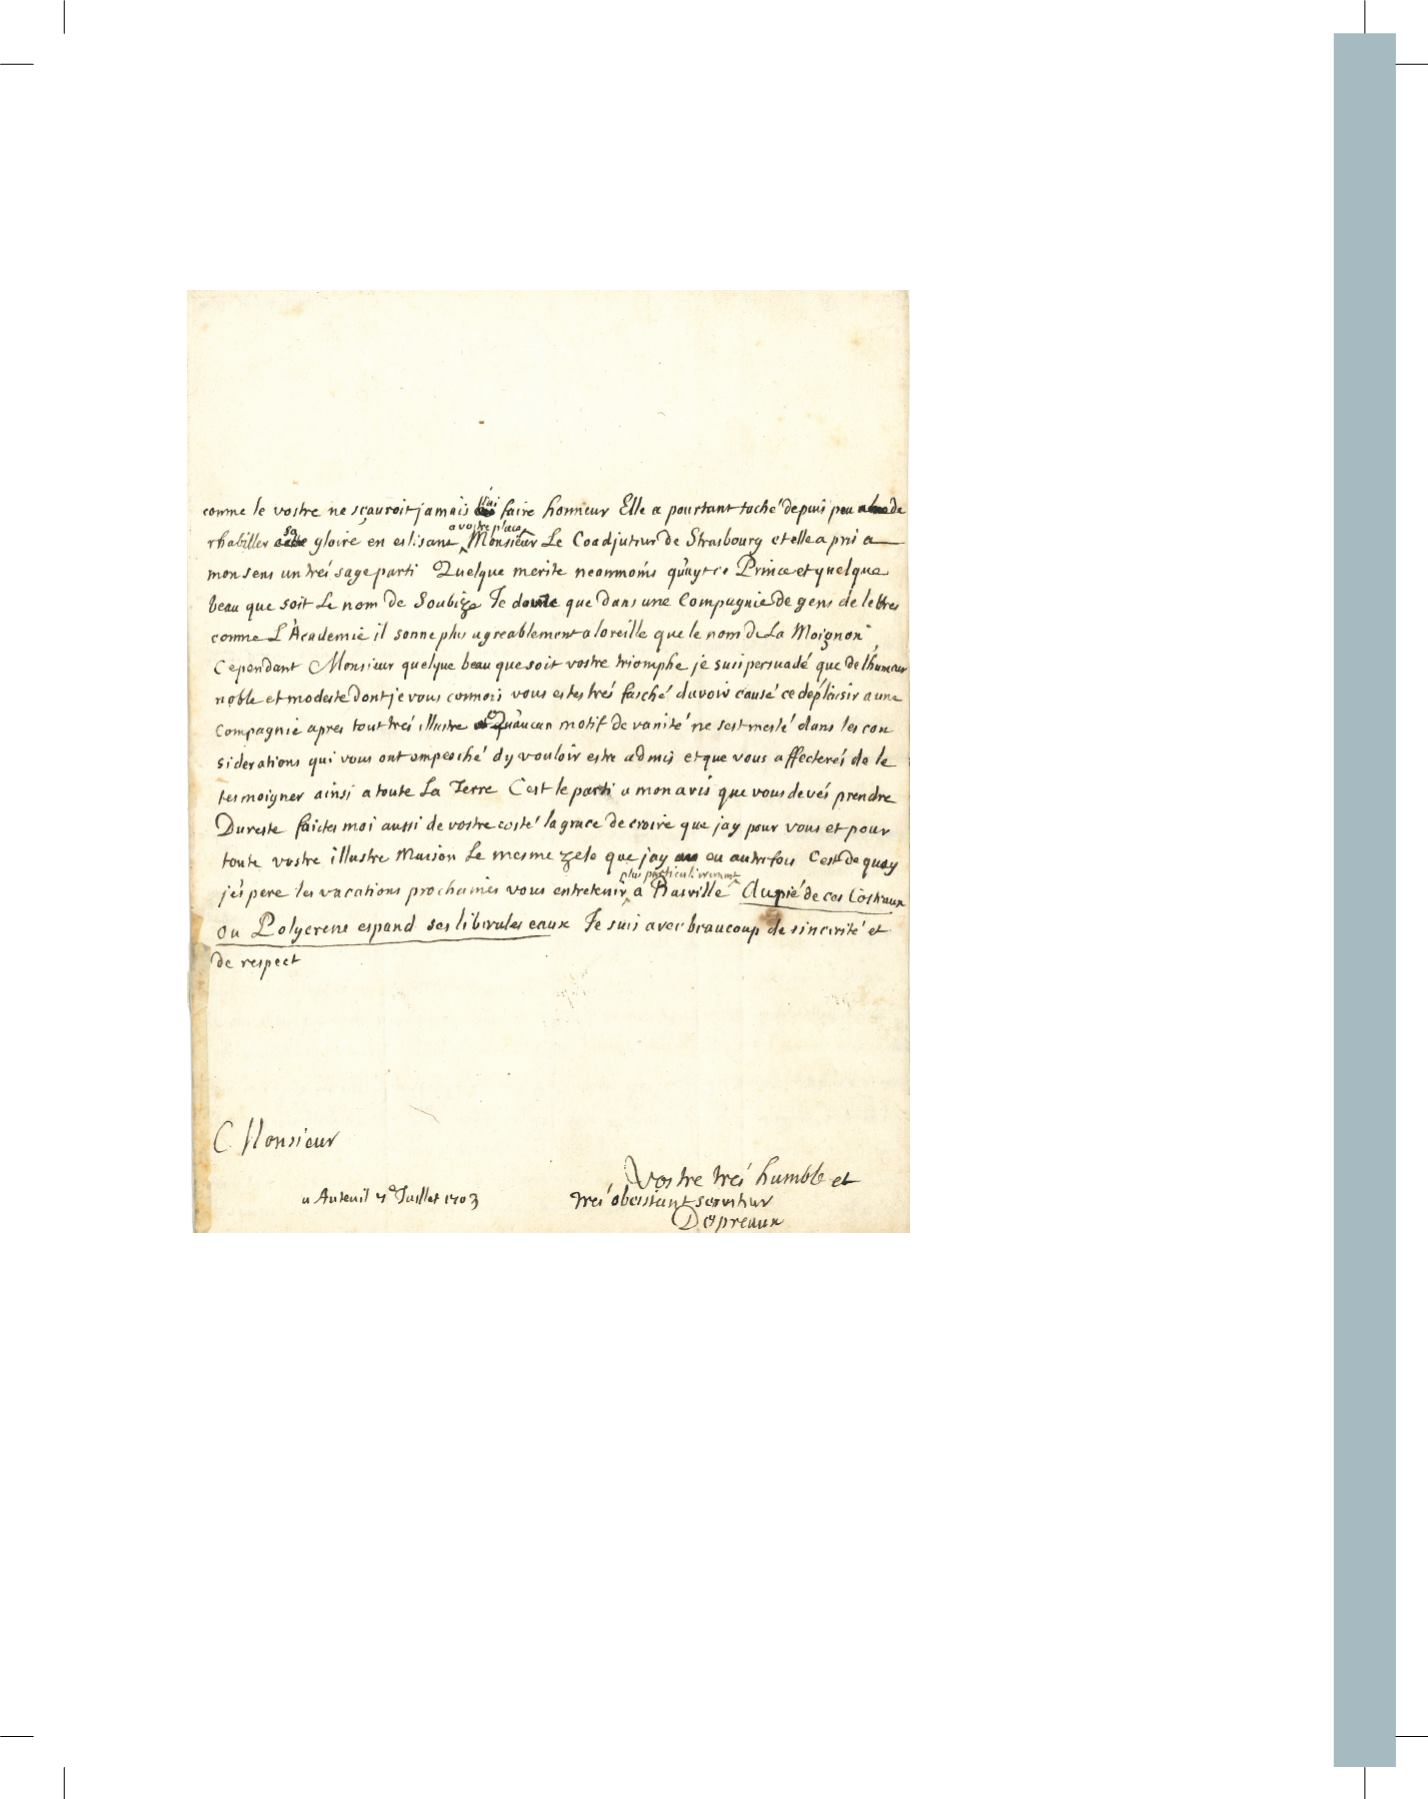 comme le vostre ne sçauroit jamais lui faire honneur Elle a pourtant taché depuis peu de
a vostre place
rhabiller sa gloire en eslisant Monsieur Le Coadjuteur de Strasbourg et elle a pris a
mon sens un tres sage parti Quelque merite neanmoins qu'ayt ce Prince et quelque
beau que soit Le nom de Soubize Je doute que dans une Compagnie de gens de lettres
comme L'Academie il sonne plus agreablement a loreille que le nom de La Moignon
Cependant Monsieur quelque beau que soit vostre triomphe je suis persuadé que de l'humeur
noble et modeste dont je vous connois vous estes trés fasché davoir causé ce déplaisir a une
Compagnie apres tout trés illustre Qu'aucun motif de vanité ne sest meslé dans les con
siderations qui vous ont empesché dy vouloir estre admis et que vous affecterés de le
tesmoigner ainsi a toute La Terre Cest le parti a mon avis que vous devés prendre
Du reste faictes moi aussi de vostre costé la grace de croire que jay pour vous et pour
toute vostre illustre Maison Le mesme zele que jay eu autrefois Cest de quoy
plus particulierement
j'espere les vacations prochaines vous entretenir a Basville Au pié de ces Costeaux
ou Polycrene espand ses liberales eaux Je suis avec beaucoup de sincerité et
de respect
Monsieur
Vostre trés humble et
a Auteuil 7e Juillet 1703
trés obeissant serviteur
Despreaux